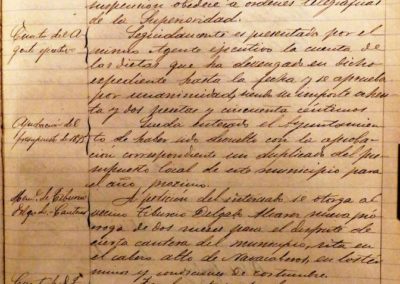 suspensión obedece a ordenes telegraficas
de la Superioridad.
Cuenta del A
gente ejecutivo
Seguidamente es presentada por el
mismo Agente ejecutivo la cuenta de
las dietas que ha devengado en dicho
expediente hasta la fecha y se aprueba
por unanimidad, siendo su importe ochen
ta y dos pesetas y cincuenta céntimos
Aprobación del
presupuesto de
Queda enterado el Ayuntamien
to de haber sido devuelto con la aproba
ción correspondiente un duplicado del pre
supuesto local de este municipio para
el año proximo.
de Tiburcio
Delgado.- Cantera
A petición del interesado se otorga al
vecino Tiburcio Delgado Alvarez nueva pro
rroga de dos meses para el disfrute de
cierta cantera del municipio, sita en
el calero alto de Navacalero, en los tér
minos y condiciones de costumbre.